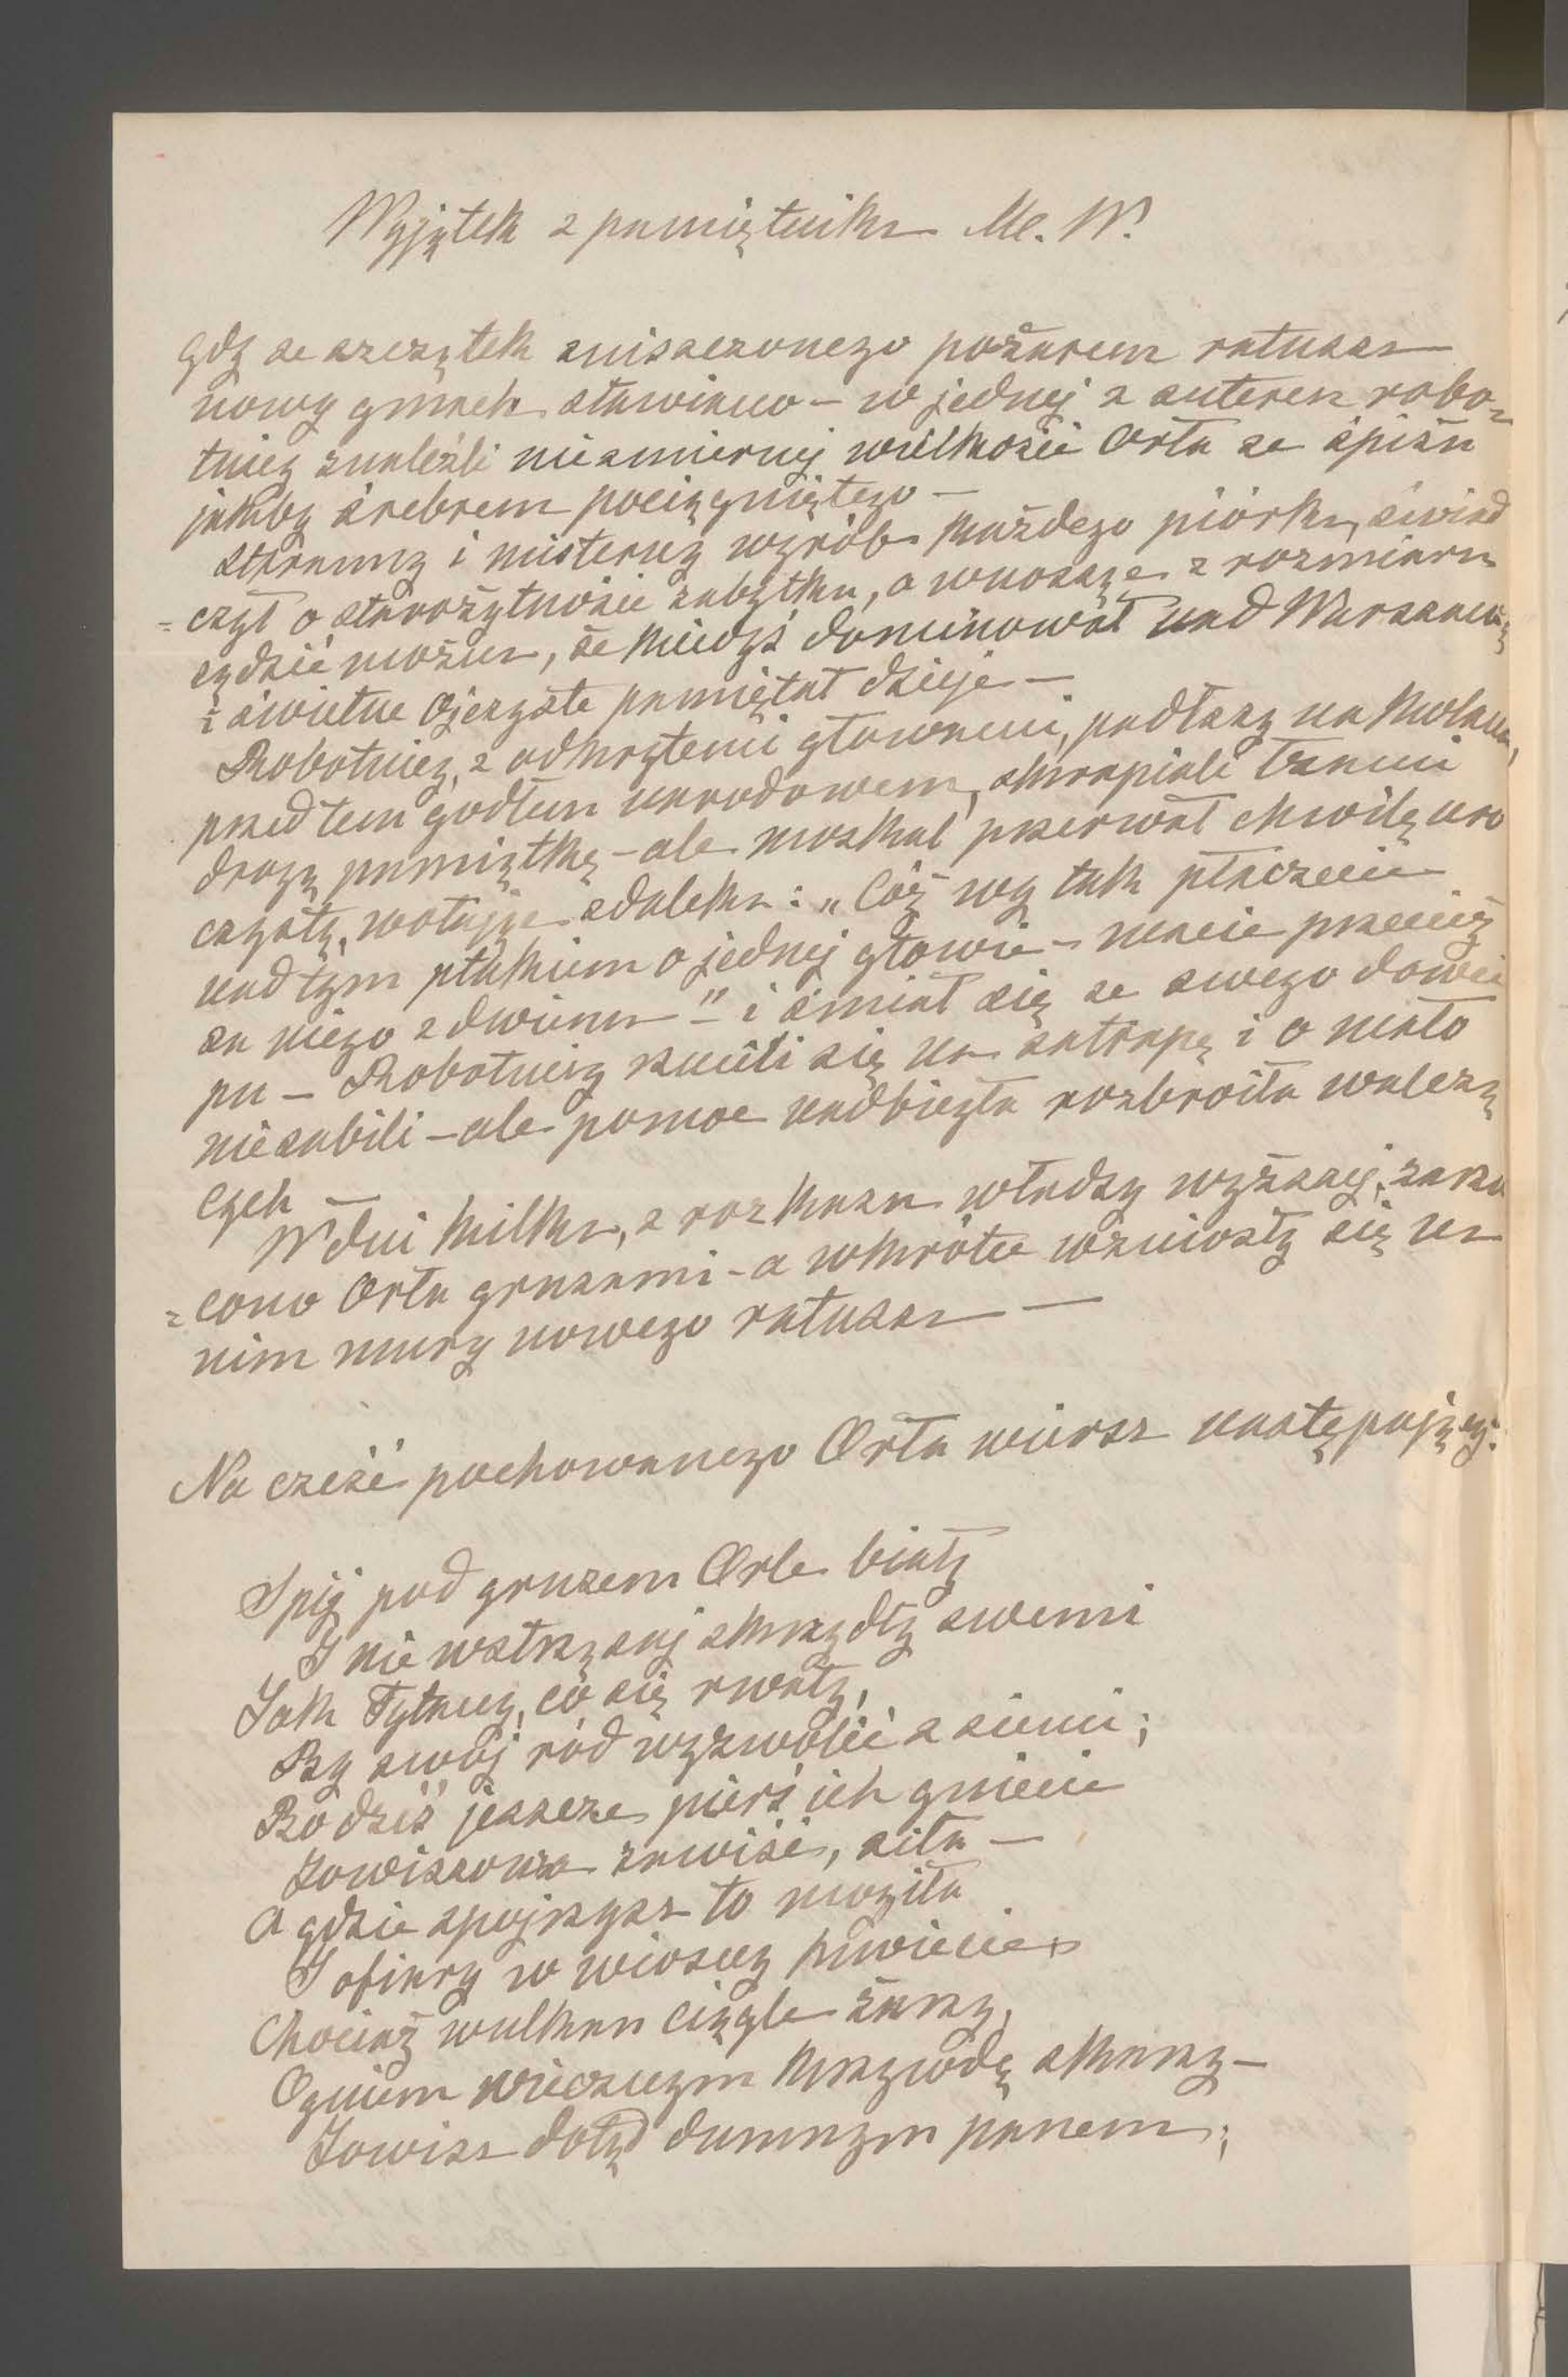 Wyjątek z pamiętnika M. W.
Gdy ze szczątek zniszczonego pożarem ratusza
nowy gmach stawiano – w jednej z suteren robo-
tnicy znaleźli niezmiernej wielkości Orła ze śpiżu
jakby srebrem pociągniętego –
Staranny i misterny wyrób każdego piórka, świad
=czył o starożytności zabytku, a wnosząc z rozmiaru
sądzić można, że kiedyś dominował nad Warszawą
i świetne Ojczyste pamiętał dzieje –
Robotnicy, z odkrytemi głowami, padłszy na kolana,
przed tem godłem narodowem, skrapiali łzami
drogą pamiątkę – ale moskal przerwał chwilę uro
czystą, wołając zdaleka: „Cóż wy tak płaczecie
nad tym ptakiem o jednej głowie – macie przecież
za niego z dwiema" – i śmiał się ze swego dowci
pu – Robotnicy rzucili się na satrapę i o mało
nie zabili – ale pomoc nadbiegła rozbroiła walczą
cych –
W dni kilka, z rozkazu władzy wyższej, zarzu
=cono Orła gruzami – a wkrótce wzniosły się na
nim mury nowego ratusza –
Na cześć pochowanego Orła wiersz następujący:
Spij pod gruzem Orle biały
I nie wstrząsaj skrzydły swemi
Jak Tytany, co się rwały,
By swój ród wyzwolić z ziemi;
Bo dziś jeszcze pierś ich gniecie
Jowiszowa zawiść, siła –
A gdzie spojrzysz to mogiła
I ofiary w wiosny kwiecie
Chociaż wulkan ciągle żarzy,
Ogniem wiecznym krzywdę skarzy –
Jowisz dotąd dumnym panem;